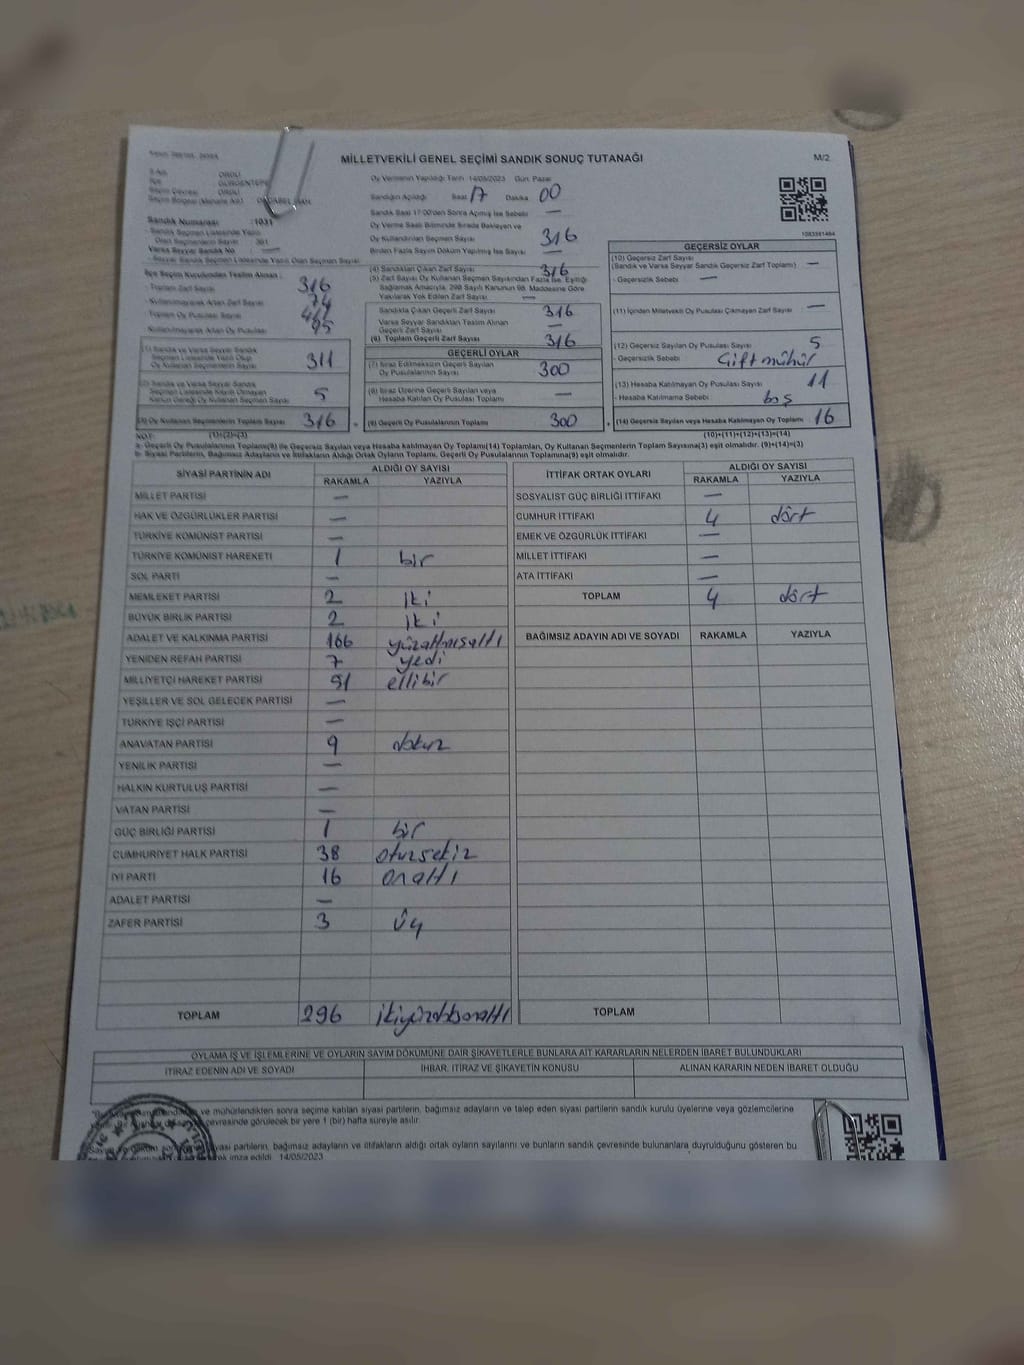 MİLLETVEKİLİ GENEL SEÇİMİ SANDIK SONUÇ TUTANAĞI
M/2
ORDU
GÜRGENTEPE
ORDU
Oy Vermenin Yapıldığı Tarih 14/05/2023 Gün: Pazar
Sandığın Açıldığı Saat 17 Dakika 00
Sandık Saat 17:00'den Sonra Açılmış İse Sebebi —
Sandık Numarası :1031
Oy Verme Saati Bitiminde Sırada Bekleyen ve
Oy Kullandırılan Seçmen Sayısı 316
Birden Fazla Sayım Döküm Yapılmış İse Sayısı —
1083381484
İlçe Seçim Kurulundan Teslim Alınan:
Toplam Zarf Sayısı 316
Kullanılmayarak Artan Zarf Sayısı 74
Toplam Oy Pusulası
Kullanılmayarak Artan Oy Pusulası 95
(1) Sandık ve Varsa Seyyar Sandık
Seçmen Listesinde Yazılı Olup
Oy Kullanan Seçmenlerin Sayısı 311
(2) Sandık ve Varsa Seyyar Sandık
Seçmen Listesinde Kayıtlı Olmayan
Kanun Gereği Oy Kullanan Seçmen Sayısı 5
(3) Oy Kullanan Seçmenlerin Toplam Sayısı 316
(1)+(2)=(3)
(4) Sandıktan Çıkan Zarf Sayısı 316
(5) Zarf Sayısı Oy Kullanan Seçmen Sayısından Fazla İse, Eşitliği
Sağlamak Amacıyla, 298 Sayılı Kanunun 98. Maddesine Göre
Yakılarak Yok Edilen Zarf Sayısı —
Sandıkta Çıkan Geçerli Zarf Sayısı 316
Varsa Seyyar Sandıktan Teslim Alınan
Geçerli Zarf Sayısı —
(6) Toplam Geçerli Zarf Sayısı 316
GEÇERLİ OYLAR
(7) İtiraz Edilmeksizin Geçerli Sayılan
Oy Pusulalarının Sayısı 300
(8) İtiraz Üzerine Geçerli Sayılan veya
Hesaba Katılan Oy Pusulası Toplamı —
(9) Geçerli Sayılan Oy Pusulalarının Toplamı 300
GEÇERSİZ OYLAR
(10) Geçersiz Zarf Sayısı
(Sandık ve Varsa Seyyar Sandık Geçersiz Zarf Toplamı) —
- Geçersizlik Sebebi —
(11) İçinden Milletvekili Oy Pusulası Çıkmayan Zarf Sayısı —
(12) Geçersiz Sayılan Oy Pusulası Sayısı 5
- Geçersizlik Sebebi Çift mühür
(13) Hesaba Katılmayan Oy Pusulası Sayısı 11
- Hesaba Katılmama Sebebi boş
(14) Geçersiz Sayılan veya Hesaba Katılmayan Oy Toplamı 16
(10)+(11)+(12)+(13)=(14)
NOT:
a- Geçerli Oy Pusulalarının Toplamı(9) ile Geçersiz Sayılan veya Hesaba katılmayan Oy Toplamı(14) Toplamları, Oy Kullanan Seçmenlerin Toplam Sayısına(3) eşit olmalıdır. (9)+(14)=(3)
b- Siyasi Partilerin, Bağımsız Adayların ve İttifakların Aldığı Ortak Oyların Toplamı, Geçerli Oy Pusulalarının Toplamına(9) eşit olmalıdır.
SİYASİ PARTİNİN ADI ALDIĞI OY SAYISI
RAKAMLA YAZIYLA
MİLLET PARTİSİ —
HAK VE ÖZGÜRLÜKLER PARTİSİ —
TÜRKİYE KOMÜNİST PARTİSİ —
TÜRKİYE KOMÜNİST HAREKETİ 1 bir
SOL PARTİ —
MEMLEKET PARTİSİ 2 iki
BÜYÜK BİRLİK PARTİSİ 2 iki
ADALET VE KALKINMA PARTİSİ 166 yüzaltmışaltı
YENİDEN REFAH PARTİSİ 7 yedi
MİLLİYETÇİ HAREKET PARTİSİ 51 ellibir
YEŞİLLER VE SOL GELECEK PARTİSİ —
TÜRKİYE İŞÇİ PARTİSİ —
ANAVATAN PARTİSİ 9 dokuz
YENİLİK PARTİSİ —
HALKIN KURTULUŞ PARTİSİ —
VATAN PARTİSİ —
GÜÇ BİRLİĞİ PARTİSİ 1 bir
CUMHURİYET HALK PARTİSİ 38 otuzsekiz
İYİ PARTİ 16 onaltı
ADALET PARTİSİ —
ZAFER PARTİSİ 3 üç
TOPLAM 296 ikiyüzdoksanaltı
İTTİFAK ORTAK OYLARI ALDIĞI OY SAYISI
RAKAMLA YAZIYLA
SOSYALİST GÜÇ BİRLİĞİ İTTİFAKI —
CUMHUR İTTİFAKI 4 dört
EMEK VE ÖZGÜRLÜK İTTİFAKI —
MİLLET İTTİFAKI —
ATA İTTİFAKI —
TOPLAM 4 dört
BAĞIMSIZ ADAYIN ADI VE SOYADI RAKAMLA YAZIYLA
TOPLAM
OYLAMA İŞ VE İŞLEMLERİNE VE OYLARIN SAYIM DÖKÜMÜNE DAİR ŞİKAYETLERLE BUNLARA AİT KARARLARIN NELERDEN İBARET BULUNDUKLARI
İTİRAZ EDENİN ADI VE SOYADI İHBAR, İTİRAZ VE ŞİKAYETİN KONUSU ALINAN KARARIN NEDEN İBARET OLDUĞU
ve mühürlendikten sonra seçime katılan siyasi partilerin, bağımsız adayların ve talep eden siyasi partilerin sandık kurulu üyelerine veya gözlemcilerine
çevresinde görülecek bir yere 1 (bir) hafta süreyle asılır.
siyasi partilerin, bağımsız adayların ve ittifakların aldığı ortak oyların sayılarını ve bunların sandık çevresinde bulunanlara duyurulduğunu gösteren bu
imza edildi. 14/05/2023